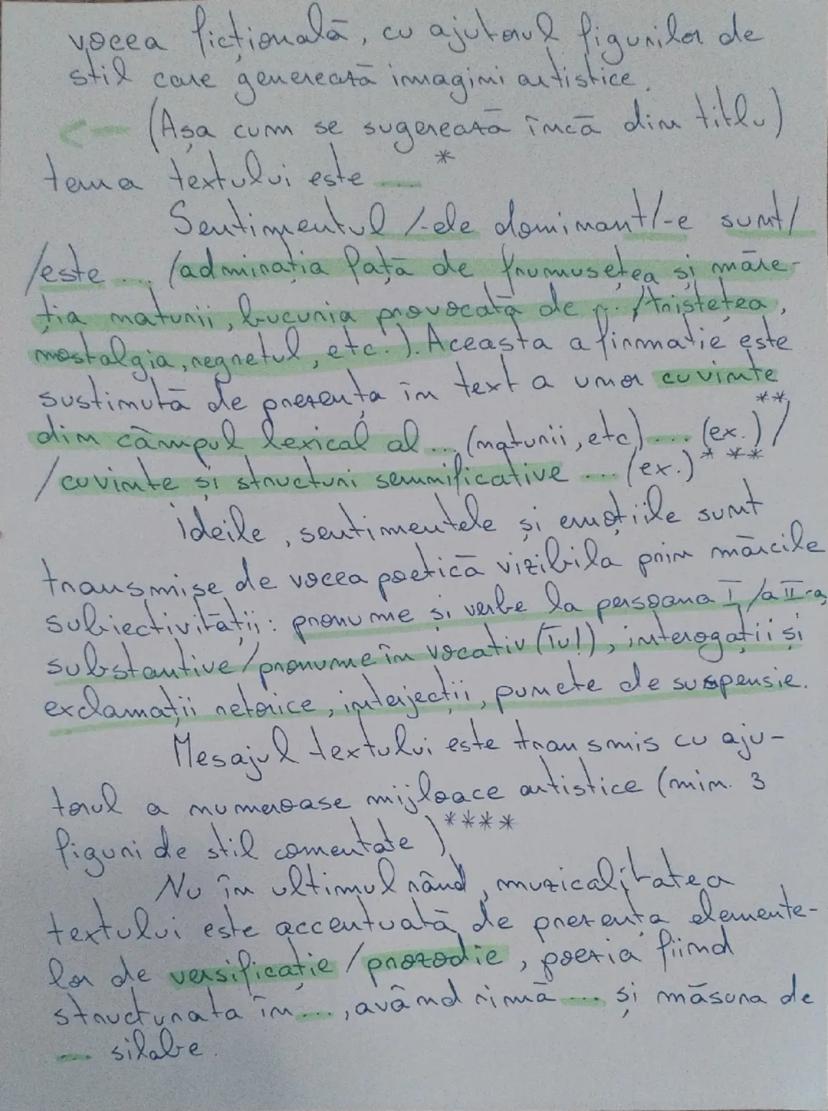 vocea ficțională, cu ajutorul figurilor de
stil care generează imagini artistice.
(Așa cum se sugerează încă din titlu)
tema textului este ....*
Sentimentul/-ele dominant/-e sunt/
/este ... (admirația față de frumusețea și măre-
ția naturii, bucuria provocată de ... /tristețea,
nostalgia, regretul, etc.). Aceasta afirmatie este
sustinută de prezența în text a unor cuvinte
din câmpul lexical al ... (naturii, etc) .... (ex.)**/
/cuvinte și structuri semnificative .... (ex.)* **
Ideile, sentimentele și emoțiile sunt
transmise de vocea poetică vizibila prin mărcile
subiectivității: pronume și verbe la persoana I/a II-a,
substantive/pronume în vocativ (Tu!), interogații și
exclamații retorice, interjecții, puncte de suspensie.
Mesajul textului este transmis cu aju-
torul a numeroase mijloace artistice (min. 3
figuri de stil comentate)****
Nu în ultimul rând, muzicalitatea
textului este accentuată de prezența elemente-
lor de versificație/prozodie, poezia fiind
structurata în ...., având rimă .... și măsura de
.... silabe.